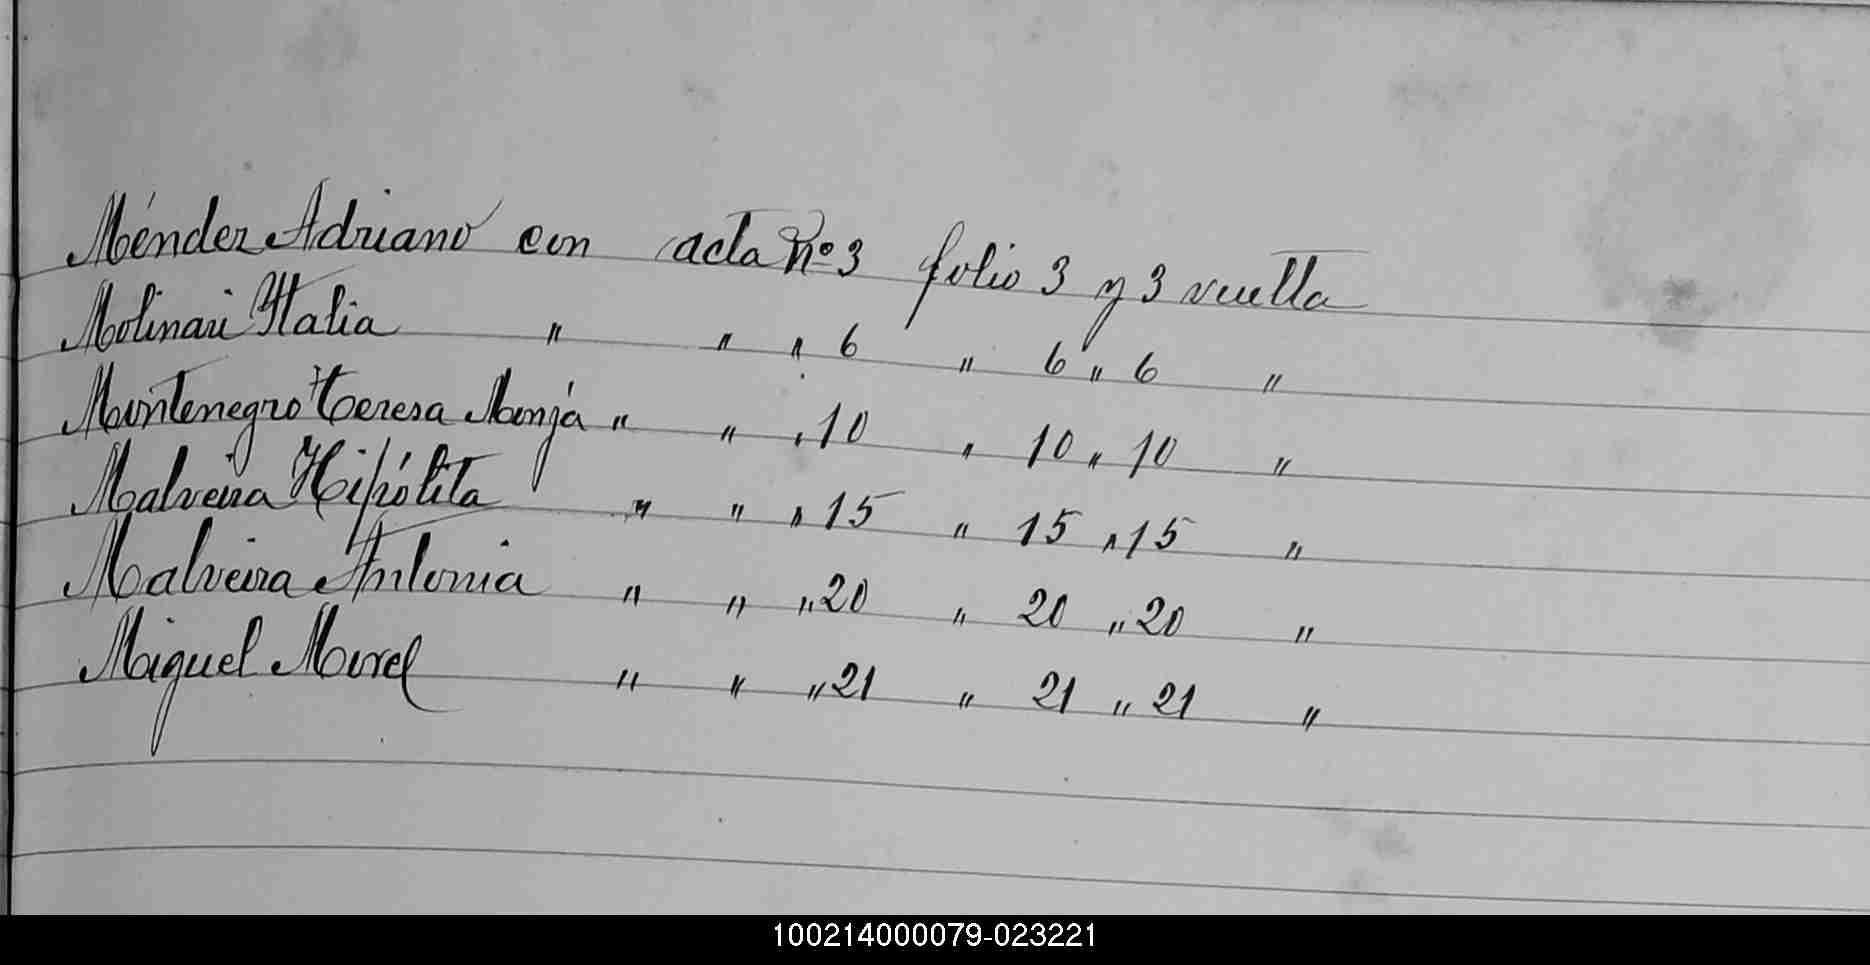 Méndez Adriano con acta Nº 3 folio 3 y 3 vuelta
Molinari Italia " " " 6 " 6 " 6 "
Montenegro Teresa Monja " " " 10 " 10 " 10 "
Malveira Hipólita " " " 15 " 15 " 15 "
Malveira Antonia " " " 20 " 20 " 20 "
Miguel Morel " " " 21 " 21 " 21 "
100214000079-023221